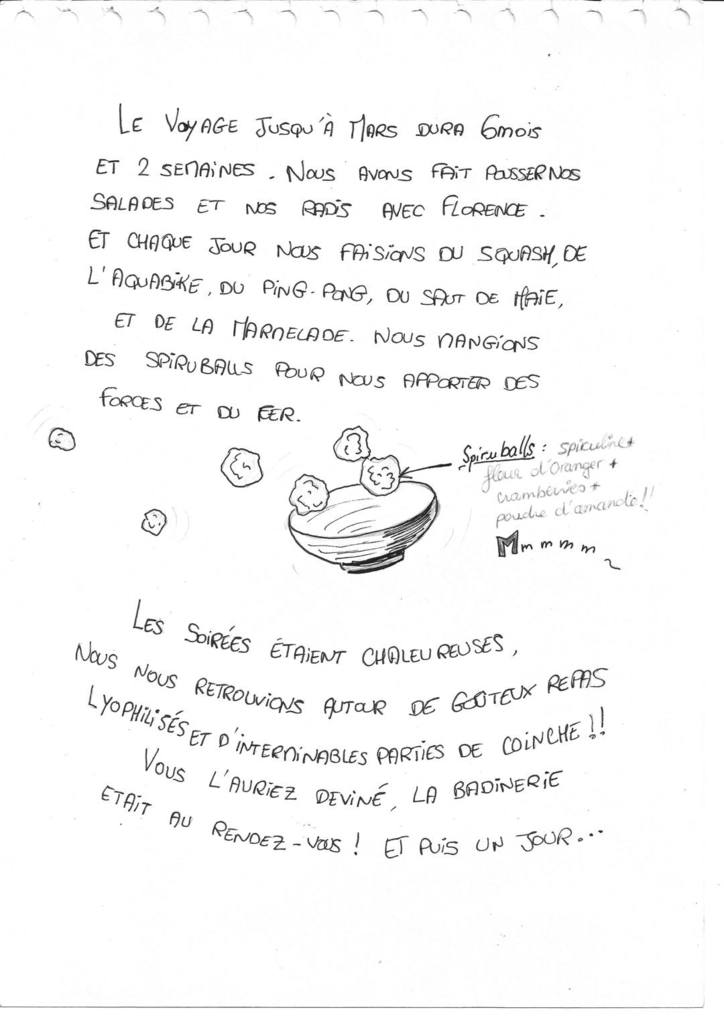 LE VOYAGE JUSQU'À MARS DURA 6MOIS
ET 2 SEMAINES. NOUS AVONS FAIT POUSSER NOS
SALADES ET NOS RADIS AVEC FLORENCE.
ET CHAQUE JOUR NOUS FAISIONS DU SQUASH, DE
L'AQUABIKE, DU PING-PONG, DU SAUT DE HAIE,
ET DE LA MARMELADE. NOUS MANGIONS
DES SPIRUBALLS POUR NOUS APPORTER DES
FORCES ET DU FER.
Spiruballs : spiruline +
fleur d'Oranger +
cramberries +
poudre d'amande!!
Mmmmm
LES SOIRÉES ÉTAIENT CHALEUREUSES,
NOUS NOUS RETROUVIONS AUTOUR DE GOÛTEUX REPAS
LYOPHILISÉS ET D'INTERMINABLES PARTIES DE COINCHE!!
VOUS L'AURIEZ DEVINÉ, LA BADINERIE
ETAIT AU RENDEZ-VOUS! ET PUIS UN JOUR...